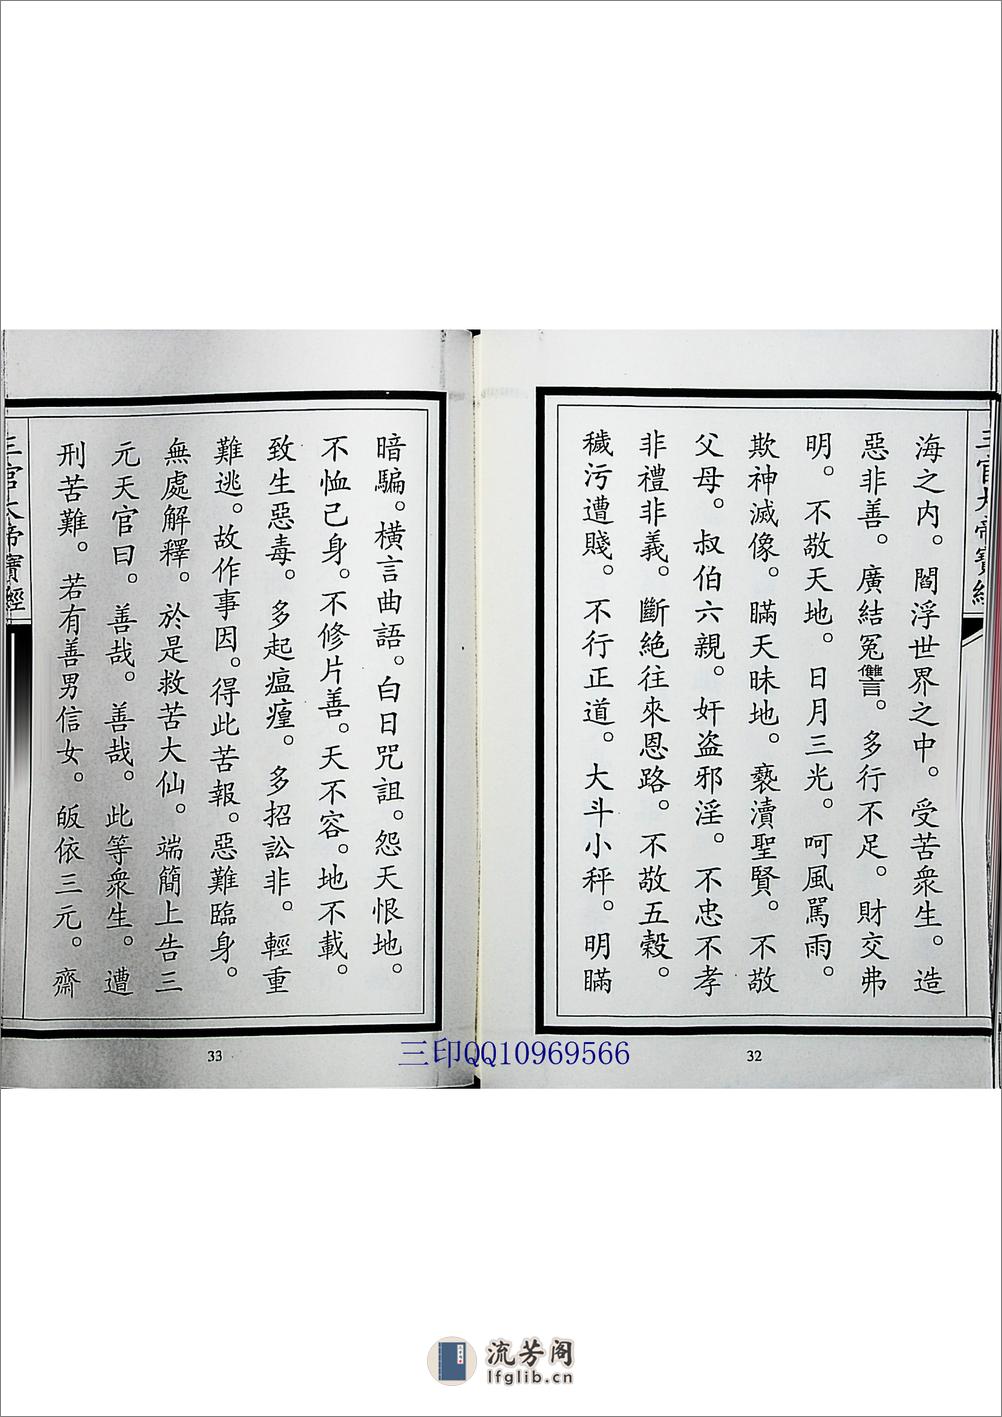 三官大帝寶經
海之内。閻浮世界之中。受苦衆生。造
惡非善。廣結冤讐。多行不足。財交弗
明。不敬天地。日月三光。呵風罵雨。
欺神滅像。瞞天昧地。褻瀆聖賢。不敬
父母。叔伯六親。奸盗邪淫。不忠不孝
非禮非義。斷絶往來恩路。不敬五穀。
穢污遭賤。不行正道。大斗小秤。明瞞
32
暗騙。橫言曲語。白日咒詛。怨天恨地。
不恤己身。不修片善。天不容。地不載。
致生惡毒。多起瘟㾮。多招訟非。輕重
難逃。故作事因。得此苦報。惡難臨身。
無處解釋。於是救苦大仙。端簡上告三
元天官曰。善哉。善哉。此等衆生。遭
刑苦難。若有善男信女。皈依三元。齋
三官大帝寶經
33
三印QQ10969566
流芳阁
lfglib.cn